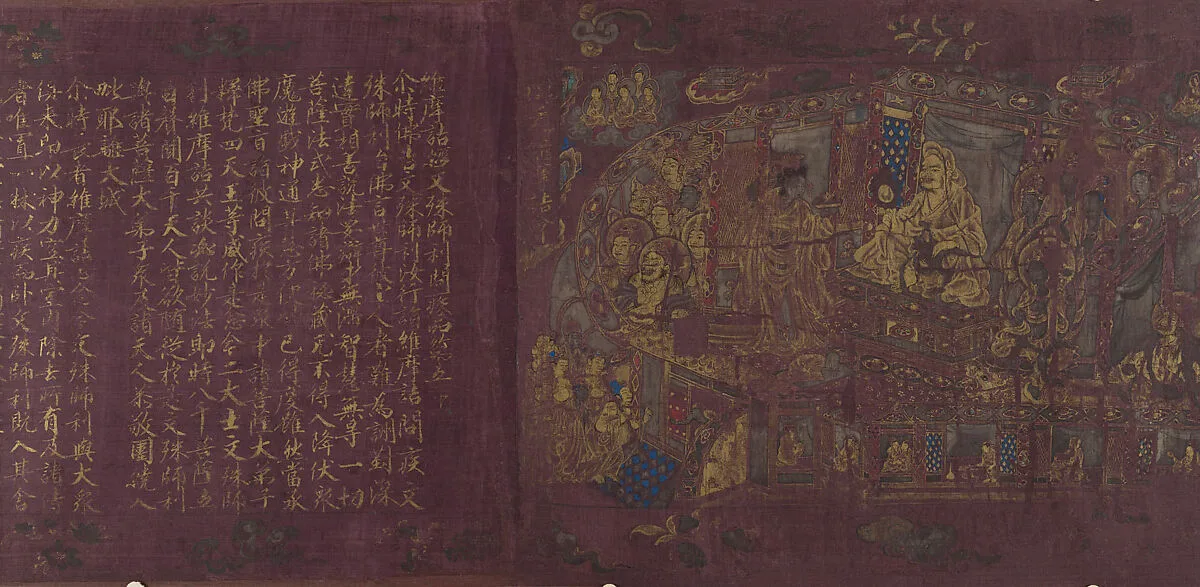 維摩詰經文殊師利問疾品第五
尒時佛告文殊師利汝行詣維摩詰問疾文
殊師利白佛言世尊彼上人者難為詶對深
達實相善說法要辯才無滯智慧無导一切
菩薩法式悉知諸佛秘藏無不得入降伏衆
魔遊戲神通其慧方便皆已得度雖然當承
佛聖旨詣彼問疾於是衆中諸菩薩大弟子
釋梵四天王等咸作是念今二大士文殊師
利維摩詰共談必說妙法即時八千菩薩五
百聲聞百千天人皆欲隨從於是文殊師利
與諸菩薩大弟子衆及諸天人恭敬圍繞入
毗耶離大城
尒時長者維摩詰心念今文殊師利與大衆
俱來即以神力空其室內除去所有及諸侍
者唯置一牀以疾而卧文殊師利既入其舍